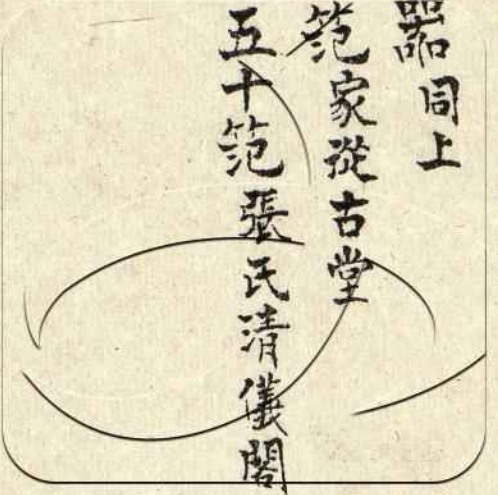 器同上
笵家從古堂
五十笵張氏清儀閣